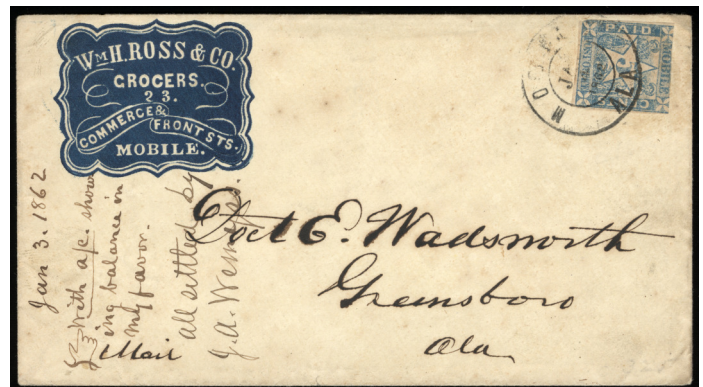 WM H. ROSS & CO.
GROCERS.
23.
COMMERCE &
FRONT STS.
MOBILE.
PAID
MOBILE
MOBILE
JA
ALA
Jan 3. 1862
With a/c. show
ing balance in
my favor.
all settled by
J. A.
Doct E. Wadsworth
Greensboro
Ala
Mail